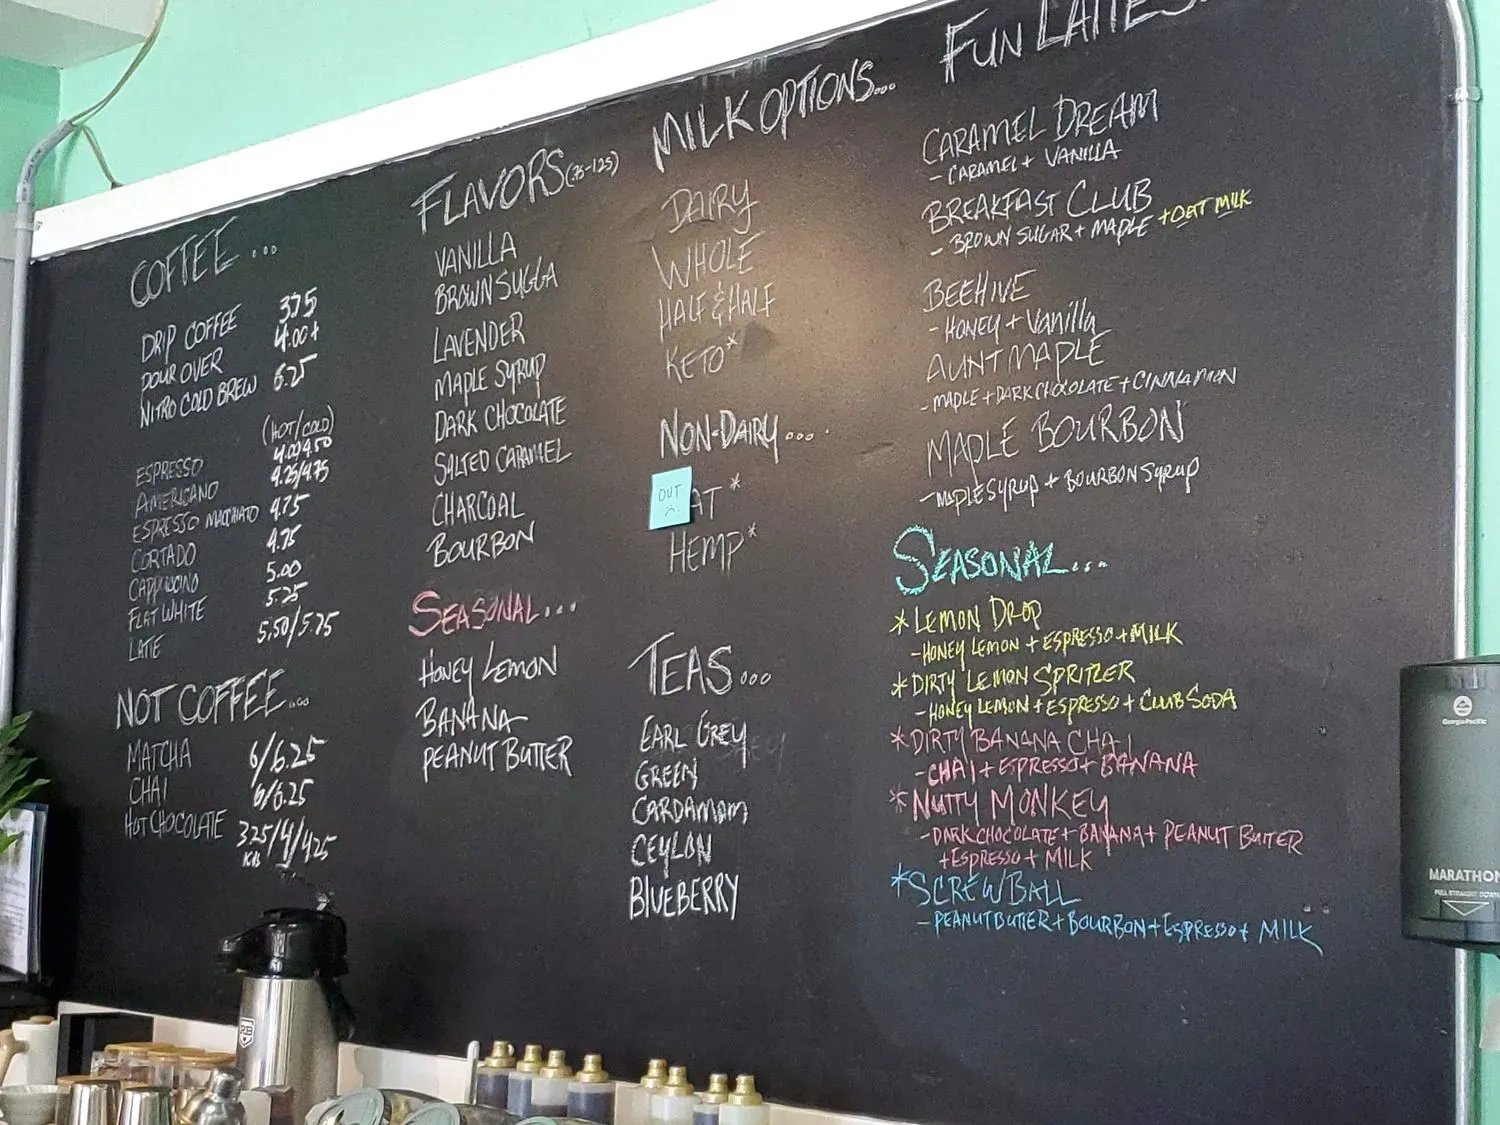 COFFEE ...
DRIP COFFEE 3.75
POUR OVER 4.00+
NITRO COLD BREW 6.25
(HOT/COLD)
ESPRESSO 4.00/4.50
AMERICANO 4.25/4.75
ESPRESSO MACCHIATO 4.75
CORTADO 4.75
CAPPUCCINO 5.00
FLAT WHITE 5.25
LATTE 5.50/5.75
NOT COFFEE...
MATCHA 6/6.25
CHAI 6/6.25
HOT CHOCOLATE 3.25/4/4.25
FLAVORS (.75-1.25)
VANILLA
BROWN SUGGA
LAVENDER
MAPLE SYRUP
DARK CHOCOLATE
SALTED CARAMEL
CHARCOAL
BOURBON
SEASONAL...
HONEY LEMON
BANANA
PEANUT BUTTER
MILK OPTIONS...
DAIRY
WHOLE
HALF & HALF
KETO*
NON-DAIRY...
OUT
AT*
HEMP*
TEAS...
EARL GREY
GREEN
CARDAMOM
CEYLON
BLUEBERRY
FUN LATTES
CARAMEL DREAM
- CARAMEL + VANILLA
BREAKFAST CLUB
- BROWN SUGAR + MAPLE +OAT MILK
BEEHIVE
- HONEY + Vanilla
AUNT MAPLE
- MAPLE + DARK CHOCOLATE + CINNAMON
MAPLE BOURBON
- MAPLE SYRUP + BOURBON SYRUP
SEASONAL...
* LEMON DROP
- HONEY LEMON + ESPRESSO + MILK
* DIRTY LEMON SPRITZER
- HONEY LEMON + ESPRESSO + CLUB SODA
* DIRTY BANANA CHAI
- CHAI + ESPRESSO + BANANA
* NUTTY MONKEY
- DARK CHOCOLATE + BANANA + PEANUT BUTTER
+ ESPRESSO + MILK
* SCREWBALL
- PEANUT BUTTER + BOURBON + ESPRESSO + MILK
Georgia-Pacific
MARATHON
RB